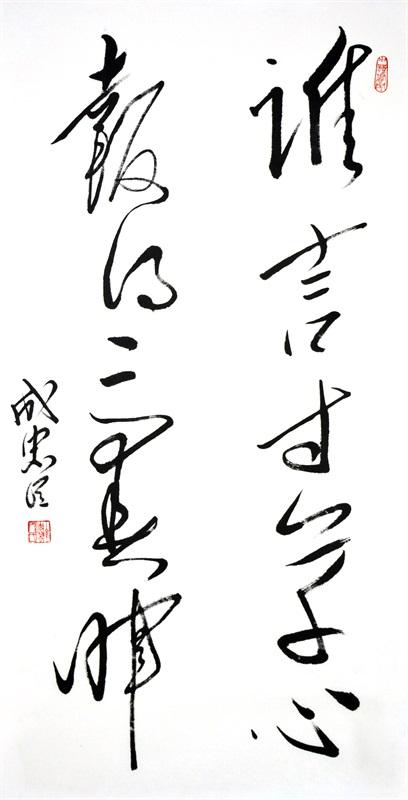 誰言寸草心
報得三春暉
成忠臣